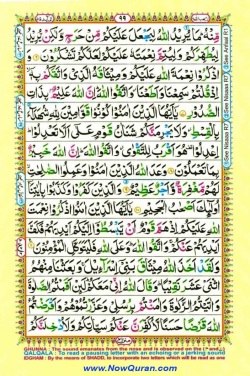 ٩٩
مِّنْهُ مَا يُرِيْدُ اللّٰهُ لِيَجْعَلَ عَلَيْكُمْ مِّنْ حَرَجٍ وَّلٰكِنْ يُّرِيْدُ
لِيُطَهِّرَكُمْ وَلِيُتِمَّ نِعْمَتَهٗ عَلَيْكُمْ لَعَلَّكُمْ تَشْكُرُوْنَ ۶ وَاذْكُرُوْا
نِعْمَةَ اللّٰهِ عَلَيْكُمْ وَمِيْثَاقَهُ الَّذِيْ وَاثَقَكُمْ بِهٖٓ اِذْ قُلْتُمْ
سَمِعْنَا وَاَطَعْنَا وَاتَّقُوا اللّٰهَ اِنَّ اللّٰهَ عَلِيْمٌۢ بِذَاتِ
الصُّدُوْرِ ۷ يٰٓاَيُّهَا الَّذِيْنَ اٰمَنُوْا كُوْنُوْا قَوَّامِيْنَ لِلّٰهِ شُهَدَآءَ
بِالْقِسْطِ وَلَا يَجْرِمَنَّكُمْ شَنَاٰنُ قَوْمٍ عَلٰٓى اَلَّا تَعْدِلُوْا
اِعْدِلُوْا هُوَ اَقْرَبُ لِلتَّقْوٰى وَاتَّقُوا اللّٰهَ اِنَّ اللّٰهَ خَبِيْرٌۢ
بِمَا تَعْمَلُوْنَ ۸ وَعَدَ اللّٰهُ الَّذِيْنَ اٰمَنُوْا وَعَمِلُوا الصّٰلِحٰتِ
لَهُمْ مَّغْفِرَةٌ وَّاَجْرٌ عَظِيْمٌ ۹ وَالَّذِيْنَ كَفَرُوْا وَكَذَّبُوْا بِاٰيٰتِنَآ
اُولٰٓئِكَ اَصْحٰبُ الْجَحِيْمِ ۱۰ يٰٓاَيُّهَا الَّذِيْنَ اٰمَنُوا اذْكُرُوْا نِعْمَتَ
اللّٰهِ عَلَيْكُمْ اِذْ هَمَّ قَوْمٌ اَنْ يَّبْسُطُوْٓا اِلَيْكُمْ اَيْدِيَهُمْ فَكَفَّ
اَيْدِيَهُمْ عَنْكُمْ وَاتَّقُوا اللّٰهَ وَعَلَى اللّٰهِ فَلْيَتَوَكَّلِ الْمُؤْمِنُوْنَ ۱۱
وَلَقَدْ اَخَذَ اللّٰهُ مِيْثَاقَ بَنِيْٓ اِسْرَآءِيْلَ وَبَعَثْنَا مِنْهُمُ
اثْنَيْ عَشَرَ نَقِيْبًا وَقَالَ اللّٰهُ اِنِّيْ مَعَكُمْ لَئِنْ اَقَمْتُمُ الصَّلٰوةَ
وَاٰتَيْتُمُ الزَّكٰوةَ وَاٰمَنْتُمْ بِرُسُلِيْ وَعَزَّرْتُمُوْهُمْ وَاَقْرَضْتُمُ اللّٰهَ
قَرْضًا حَسَنًا لَّاُكَفِّرَنَّ عَنْكُمْ سَيِّاٰتِكُمْ وَلَاُدْخِلَنَّكُمْ
GHUNNA : The sound emanates from the nose and is observed on the
QALQALA : To read a pausing letter with an echoing or a jerking sound
IDGHAM : By the means of SHADD, to incorporate two letters which will be read as one
www.NowQuran.com